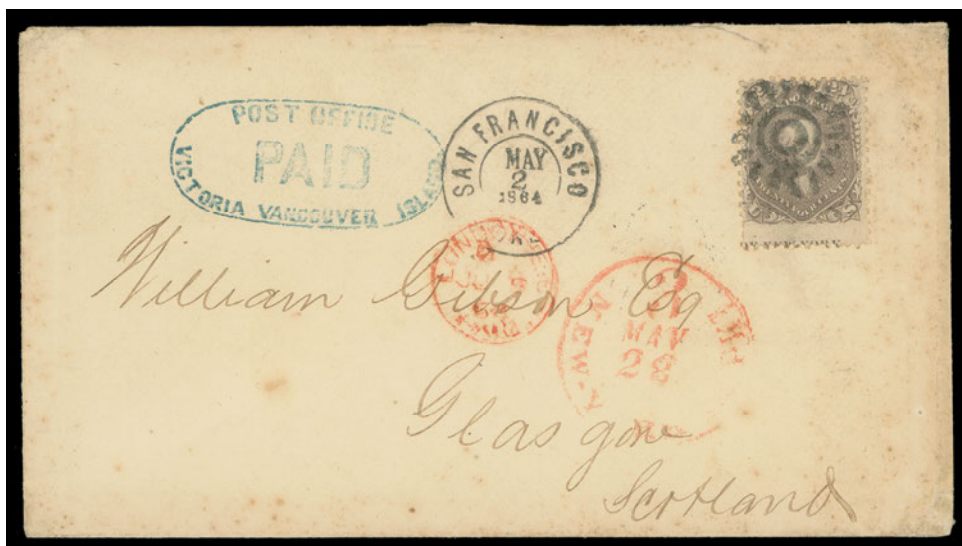 POST OFFICE
PAID
VICTORIA VANCOUVER ISLAND
SAN FRANCISCO
MAY
2
1864
LONDON
PAID
3
MAY
28
NEW
William Gibson Esq
Glasgow
Scotland